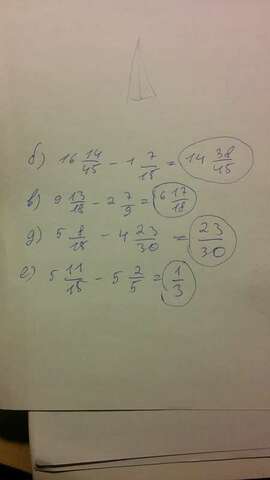 б) 16 14/45 - 1 7/15 = 14 38/45
в) 9 13/18 - 2 7/9 = 6 17/18
д) 5 8/15 - 4 23/30 = 23/30
е) 5 11/15 - 5 2/5 = 1/3